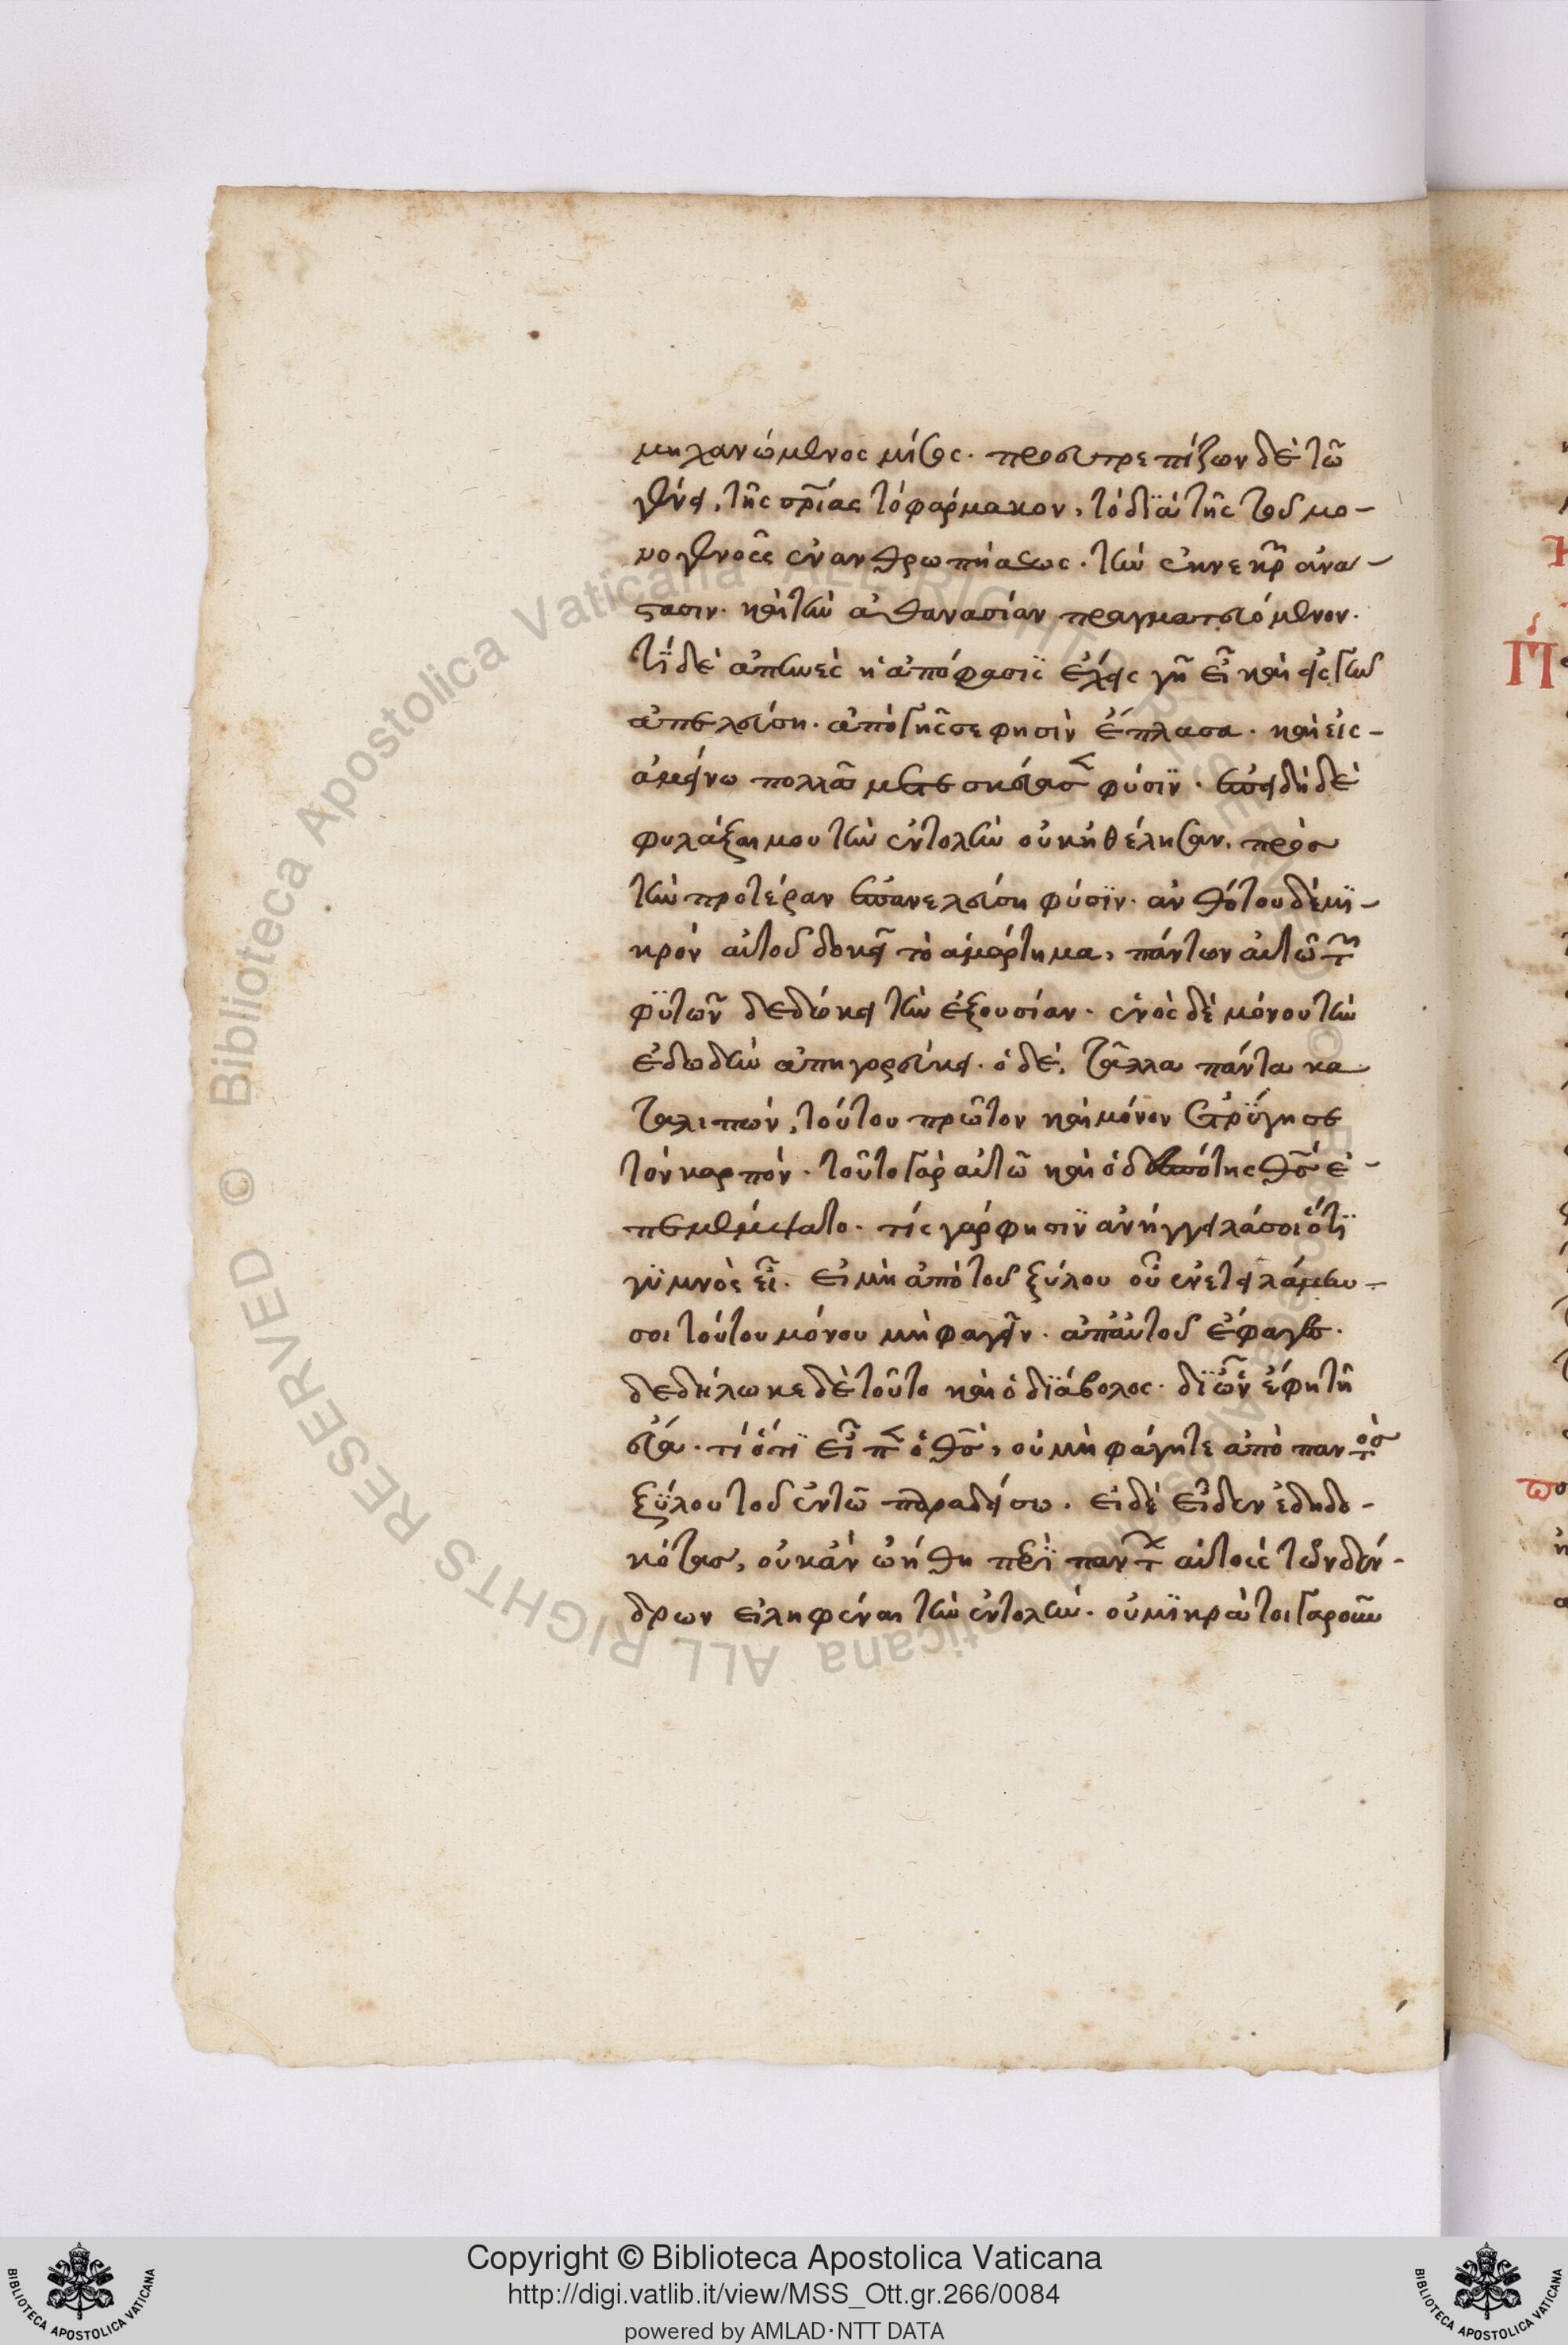 μηχανώμενος μίσος. προευτρεπίζων δὲ τῶ
γένει, τῆς σρίας τὸ φάρμακον, τὸ διὰ τῆς τοῦ μο-
νογενοῦς ἐνανθρωπήσεως. τὴν ἐκ νεκρ ἀνά-
στασιν. καὶ τὴν ἀθανασίαν πραγματευόμενον.
τί δὲ
ἀπελεύση. ἀπὸ γῆς σε φησὶν ἔπλασα. καὶ εἰς
ἀμείνω πολλῶ μετεσκεύασα φύσιν. ἐπειδὴ δέ
φυλάξαι μου τὴν ἐντολὴν οὐκ ἠθέλησας, πρὸς
τὴν προτέραν ἐπανελεύση φύσιν. ἀνθότου δὲ μι-
κρὸν αὐτοῦ δοκεῖ τὸ ἁμάρτημα, πάντων αὐτῶ τ
φυτῶν δέδωκει τὴν ἐξουσίαν. ἑνὸς δὲ μόνου τὴν
ἐδωδὴν ἀπηγορεύκει. ὁ δέ, τἄλλα πάντα κα
ταλιπών, τούτου πρῶτον καὶ μόνον ἐτρύγησε
τὸν καρπόν. τοῦτο γὰρ αὐτῶ καὶ ὁ δεσπότης θς ἐ-
πεμέμψατο. τίς γάρ φησιν ἀνήγγειλά σοι ὅτι
γυμνὸς εἶ. εἰ μὴ ἀπὸ τοῦ ξύλου οὗ ἐνετειλάμην
σοι τούτου μόνου μὴ φαγεῖν. ἀπ' αὐτοῦ ἔφαγες.
δεδήλωκε δὲ τοῦτο καὶ ὁ διάβολος. δι' ὧν ἔφη τῆ
εὔα. τί ὅτι εἶπ ὁ θς, οὐ μὴ φάγητε ἀπὸ παντὸς
ξύλου τοῦ ἐν τῶ παραδείσω. εἰ δὲ εἶδεν ἐδηδο-
κότας, οὐκ ἂν ὠήθη περὶ παντ αὐτοὺς τῶν δέν-
δρων εἰληφέναι τὴν ἐντολήν. οὐ μικρὰ τοιγαροῦν